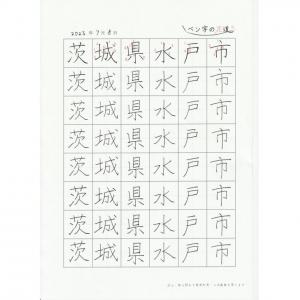 2023年7月8日
ペン字の花道
茨城県水戸市
茨城県水戸市
茨城県水戸市
茨城県水戸市
茨城県水戸市
茨城県水戸市
茨城県水戸市
茨城県水戸市